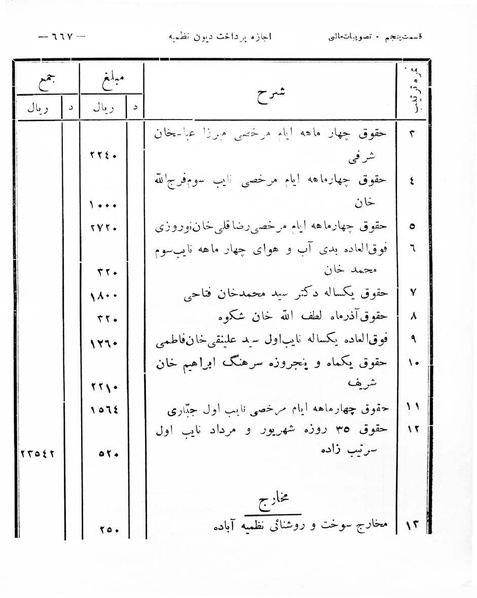 قسمت پنجم - تصویبات مالی
اجازه پرداخت دیون نظمیه
— ٦٦٧ —
نمره ترتیب
شرح
مبلغ
جمع
د ریال
د ریال
٣ حقوق چهار ماهه ایام مرخصی میرزا عباسخان
شرفی ٢٢٤٠
٤ حقوق چهارماهه ایام مرخصی نایب سوم فرج‌الله
خان ١٠٠٠
٥ حقوق چهارماهه ایام مرخصی رضاقلی خان نوروزی ٢٧٢٠
٦ فوق‌العاده بدی آب و هوای چهار ماهه نایب سوم
محمد خان ٣٢٠
٧ حقوق یکساله دکتر سید محمدخان فتاحی ١٨٠٠
٨ حقوق آذرماه لطف الله خان شکوه ٣٢٠
٩ فوق‌العاده یکساله نایب اول سید علینقی خان فاطمی ١٢٦٠
١٠ حقوق یکماه و پنجروزه سرهنگ ابراهیم خان
شریف ٢٢١٠
١١ حقوق چهارماهه ایام مرخصی نایب اول جباری ١٥٦٤
١٢ حقوق ٣٥ روزه شهریور و مرداد نایب اول
سرتیب زاده ٥٢٠ ٢٣٥٤٢
مخارج
١٣ مخارج سوخت و روشنائی نظمیه آباده ٢٥٠